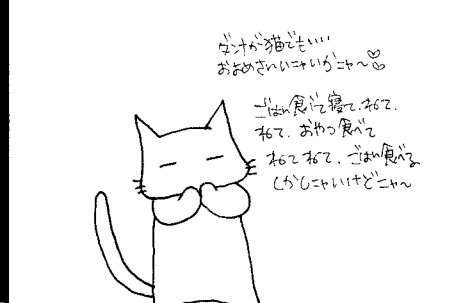 ダンナが猫でも‥‥
およめさんいにゃいかニャ〜♡♡
ごはん食べて寝て、ねて、
ねて、おやつ食べて
ねてねて、ごはん食べる
しかしにゃいけどニャ〜